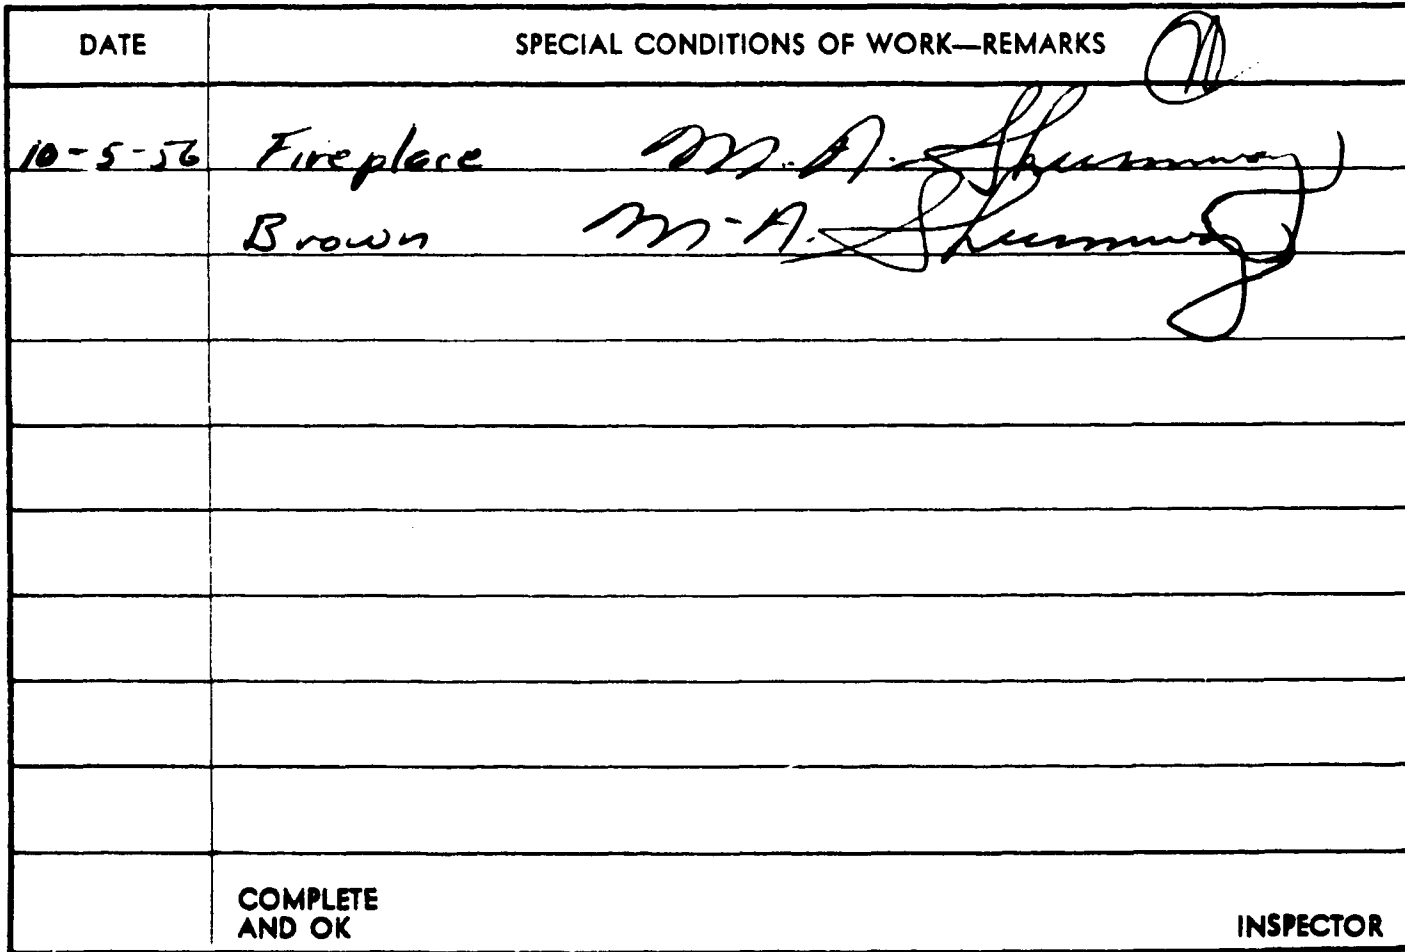 DATE SPECIAL CONDITIONS OF WORK—REMARKS
10-5-56 Fireplace M. A. Shumway
Brown M-A. Shumway
COMPLETE
AND OK INSPECTOR